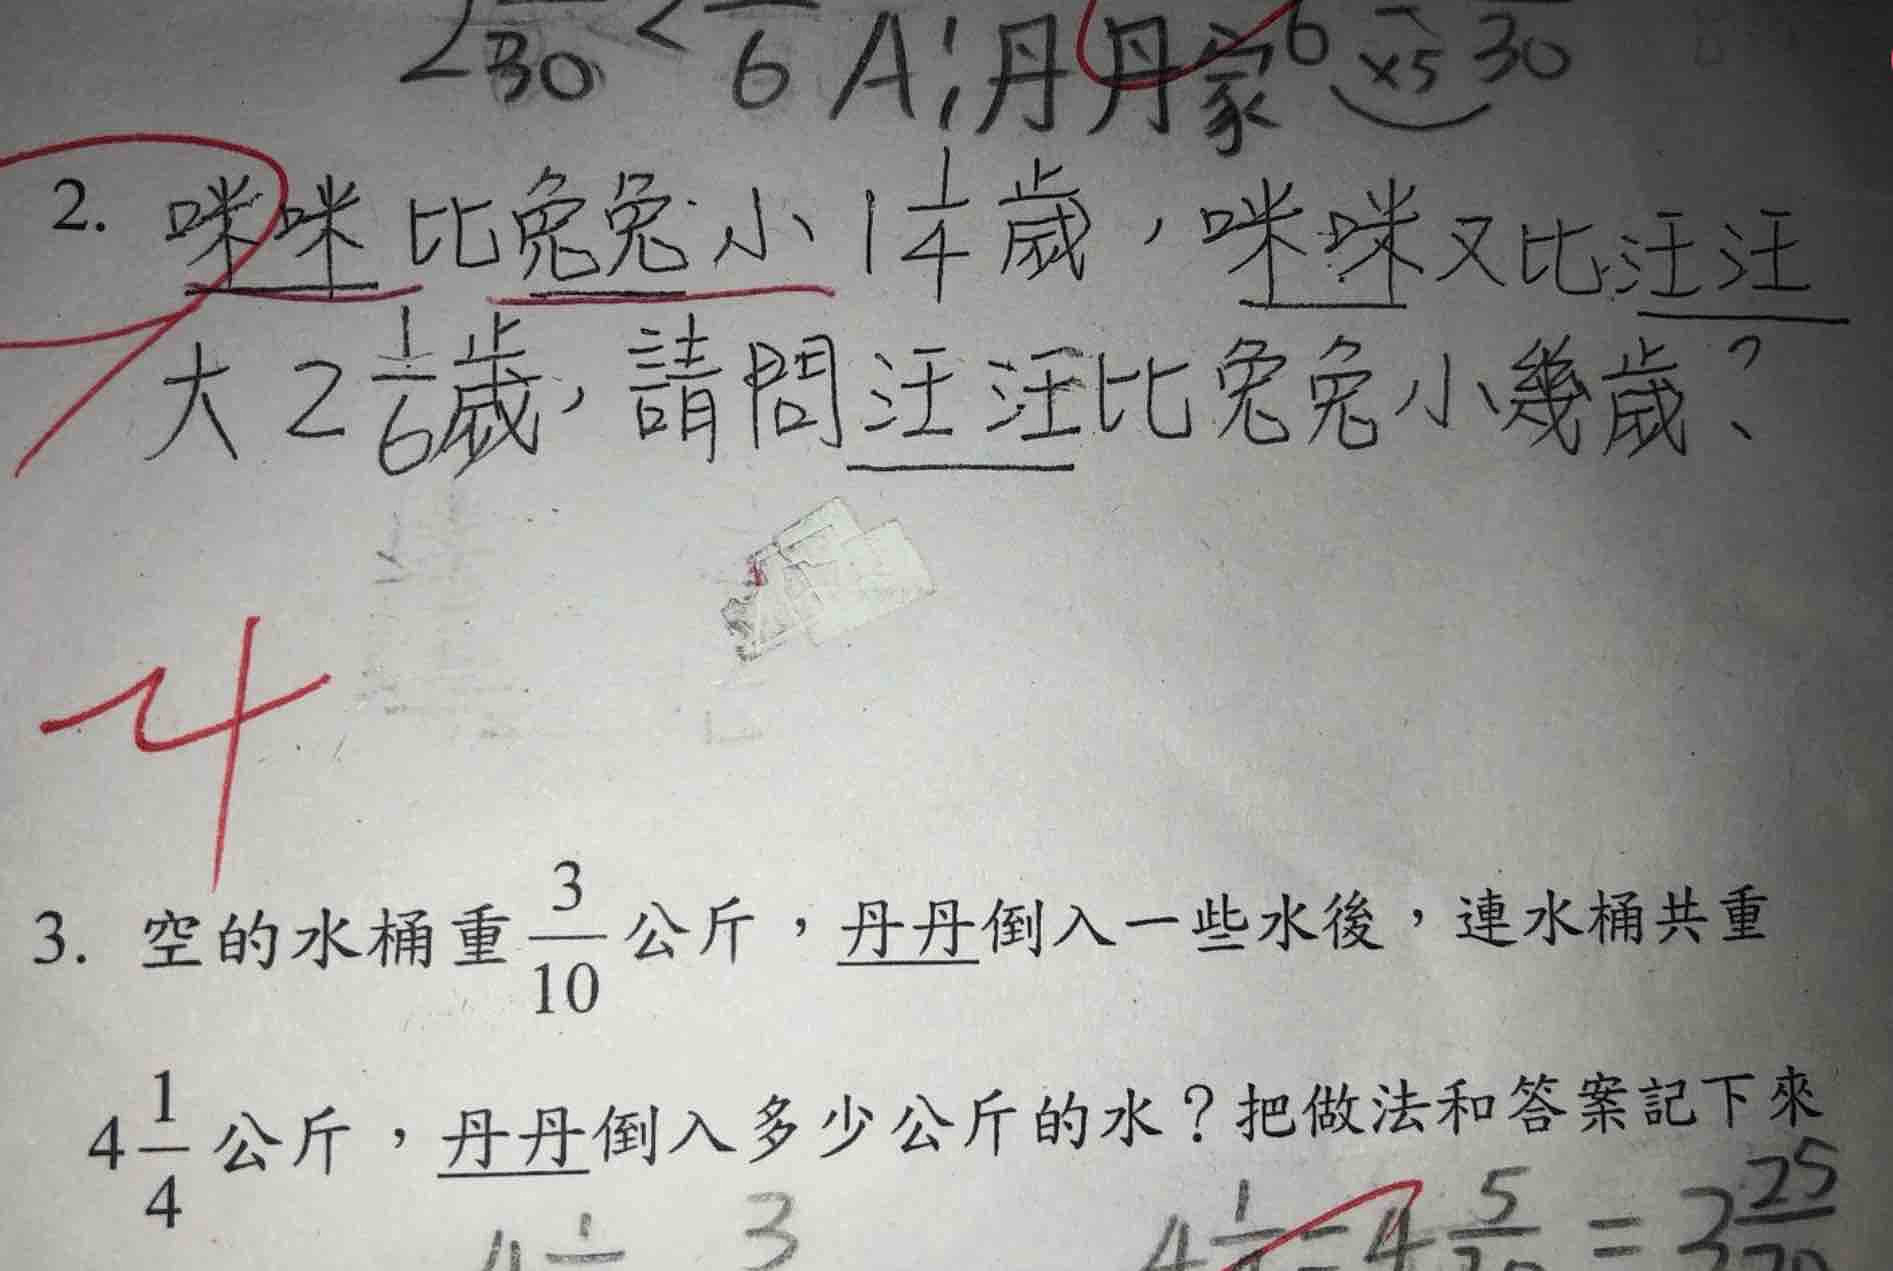 30 < 6 A:丹丹家 6 ×5 30
2. 咪咪比兔兔小1 1/4歲,咪咪又比汪汪
大2 1/6歲,請問汪汪比兔兔小幾歲?
3. 空的水桶重3/10公斤,丹丹倒入一些水後,連水桶共重
4 1/4公斤,丹丹倒入多少公斤的水?把做法和答案記下來
3 4 1 = 4 5 = 3 25